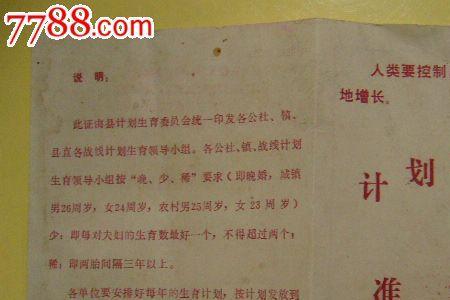 7788.com
说明：
此证由县计划生育委员会统一印发各公社、镇、
县直各战线计划生育领导小组。各公社、镇、战线计划
生育领导小组按“晚、少、稀”要求（即晚婚，城镇
男26周岁，女24周岁，农村男25周岁，女23周岁）
少：即每对夫妇的生育数最好一个，不得超过两个；
稀：即两胎间隔三年以上。
各单位要安排好每年的生育计划，按计划发放到
人类要控制
地增长。
计划
准